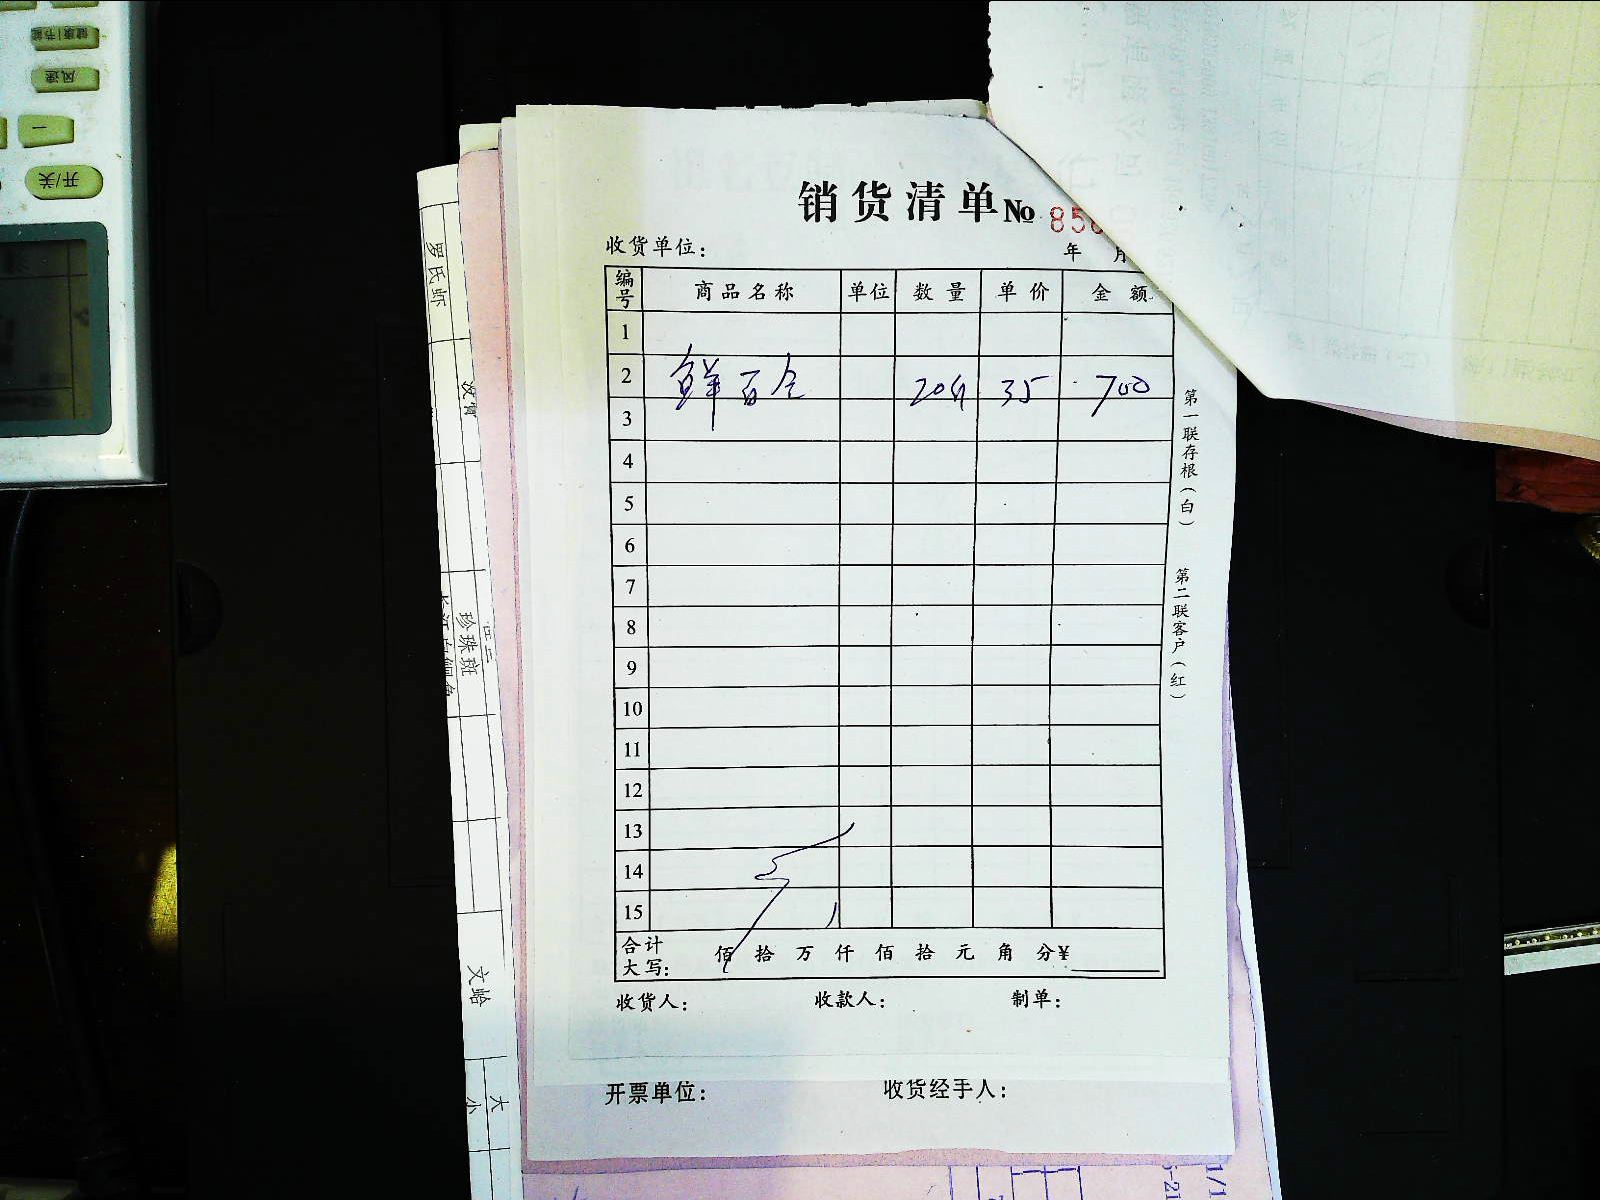 健康|节能
风速
一
开/关
罗氏虾
没有
珍珠斑
文蛤
大
小
销货清单№ 856
收货单位：
年 月
编号 商品名称 单位 数量 单价 金额
1
2 鲜百合 20斤 35 700
3
4
5
6
7
8
9
10
11
12
13
14
15
合计大写： 佰 拾 万 仟 佰 拾 元 角 分¥
收货人： 收款人： 制单：
第一联存根（白）
第二联客户（红）
开票单位： 收货经手人：